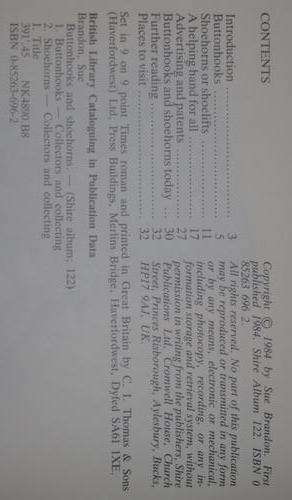 CONTENTS
Introduction ........................ 3
Buttonhooks ........................ 5
Shoehorns or shoelifts ............ 11
A helping hand for all ............ 17
Advertising and patents ............ 27
Buttonhooks and shoehorns today ... 30
Further reading ..................... 32
Places to visit ..................... 32
Copyright © 1984 by Sue Brandon. First
published 1984. Shire Album 122. ISBN 0
85263 696 2.
All rights reserved. No part of this publication
may be reproduced or transmitted in any form
or by any means, electronic or mechanical,
including photocopy, recording, or any in-
formation storage and retrieval system, without
permission in writing from the publishers, Shire
Publications Ltd, Cromwell House, Church
Street, Princes Risborough, Aylesbury, Bucks,
HP17 9AJ, UK.
Set in 9 on 9 point Times roman and printed in Great Britain by C. I. Thomas & Sons
(Haverfordwest) Ltd, Press Buildings, Merlins Bridge, Haverfordwest, Dyfed SA61 1XF.
British Library Cataloguing in Publication Data
Brandon, Sue
Buttonhooks and shoehorns — (Shire album; 122)
1. Buttonhooks — Collectors and collecting
2. Shoehorns — Collectors and collecting
I. Title
391'.45 NK4890.B8
ISBN 0-85263-696-2